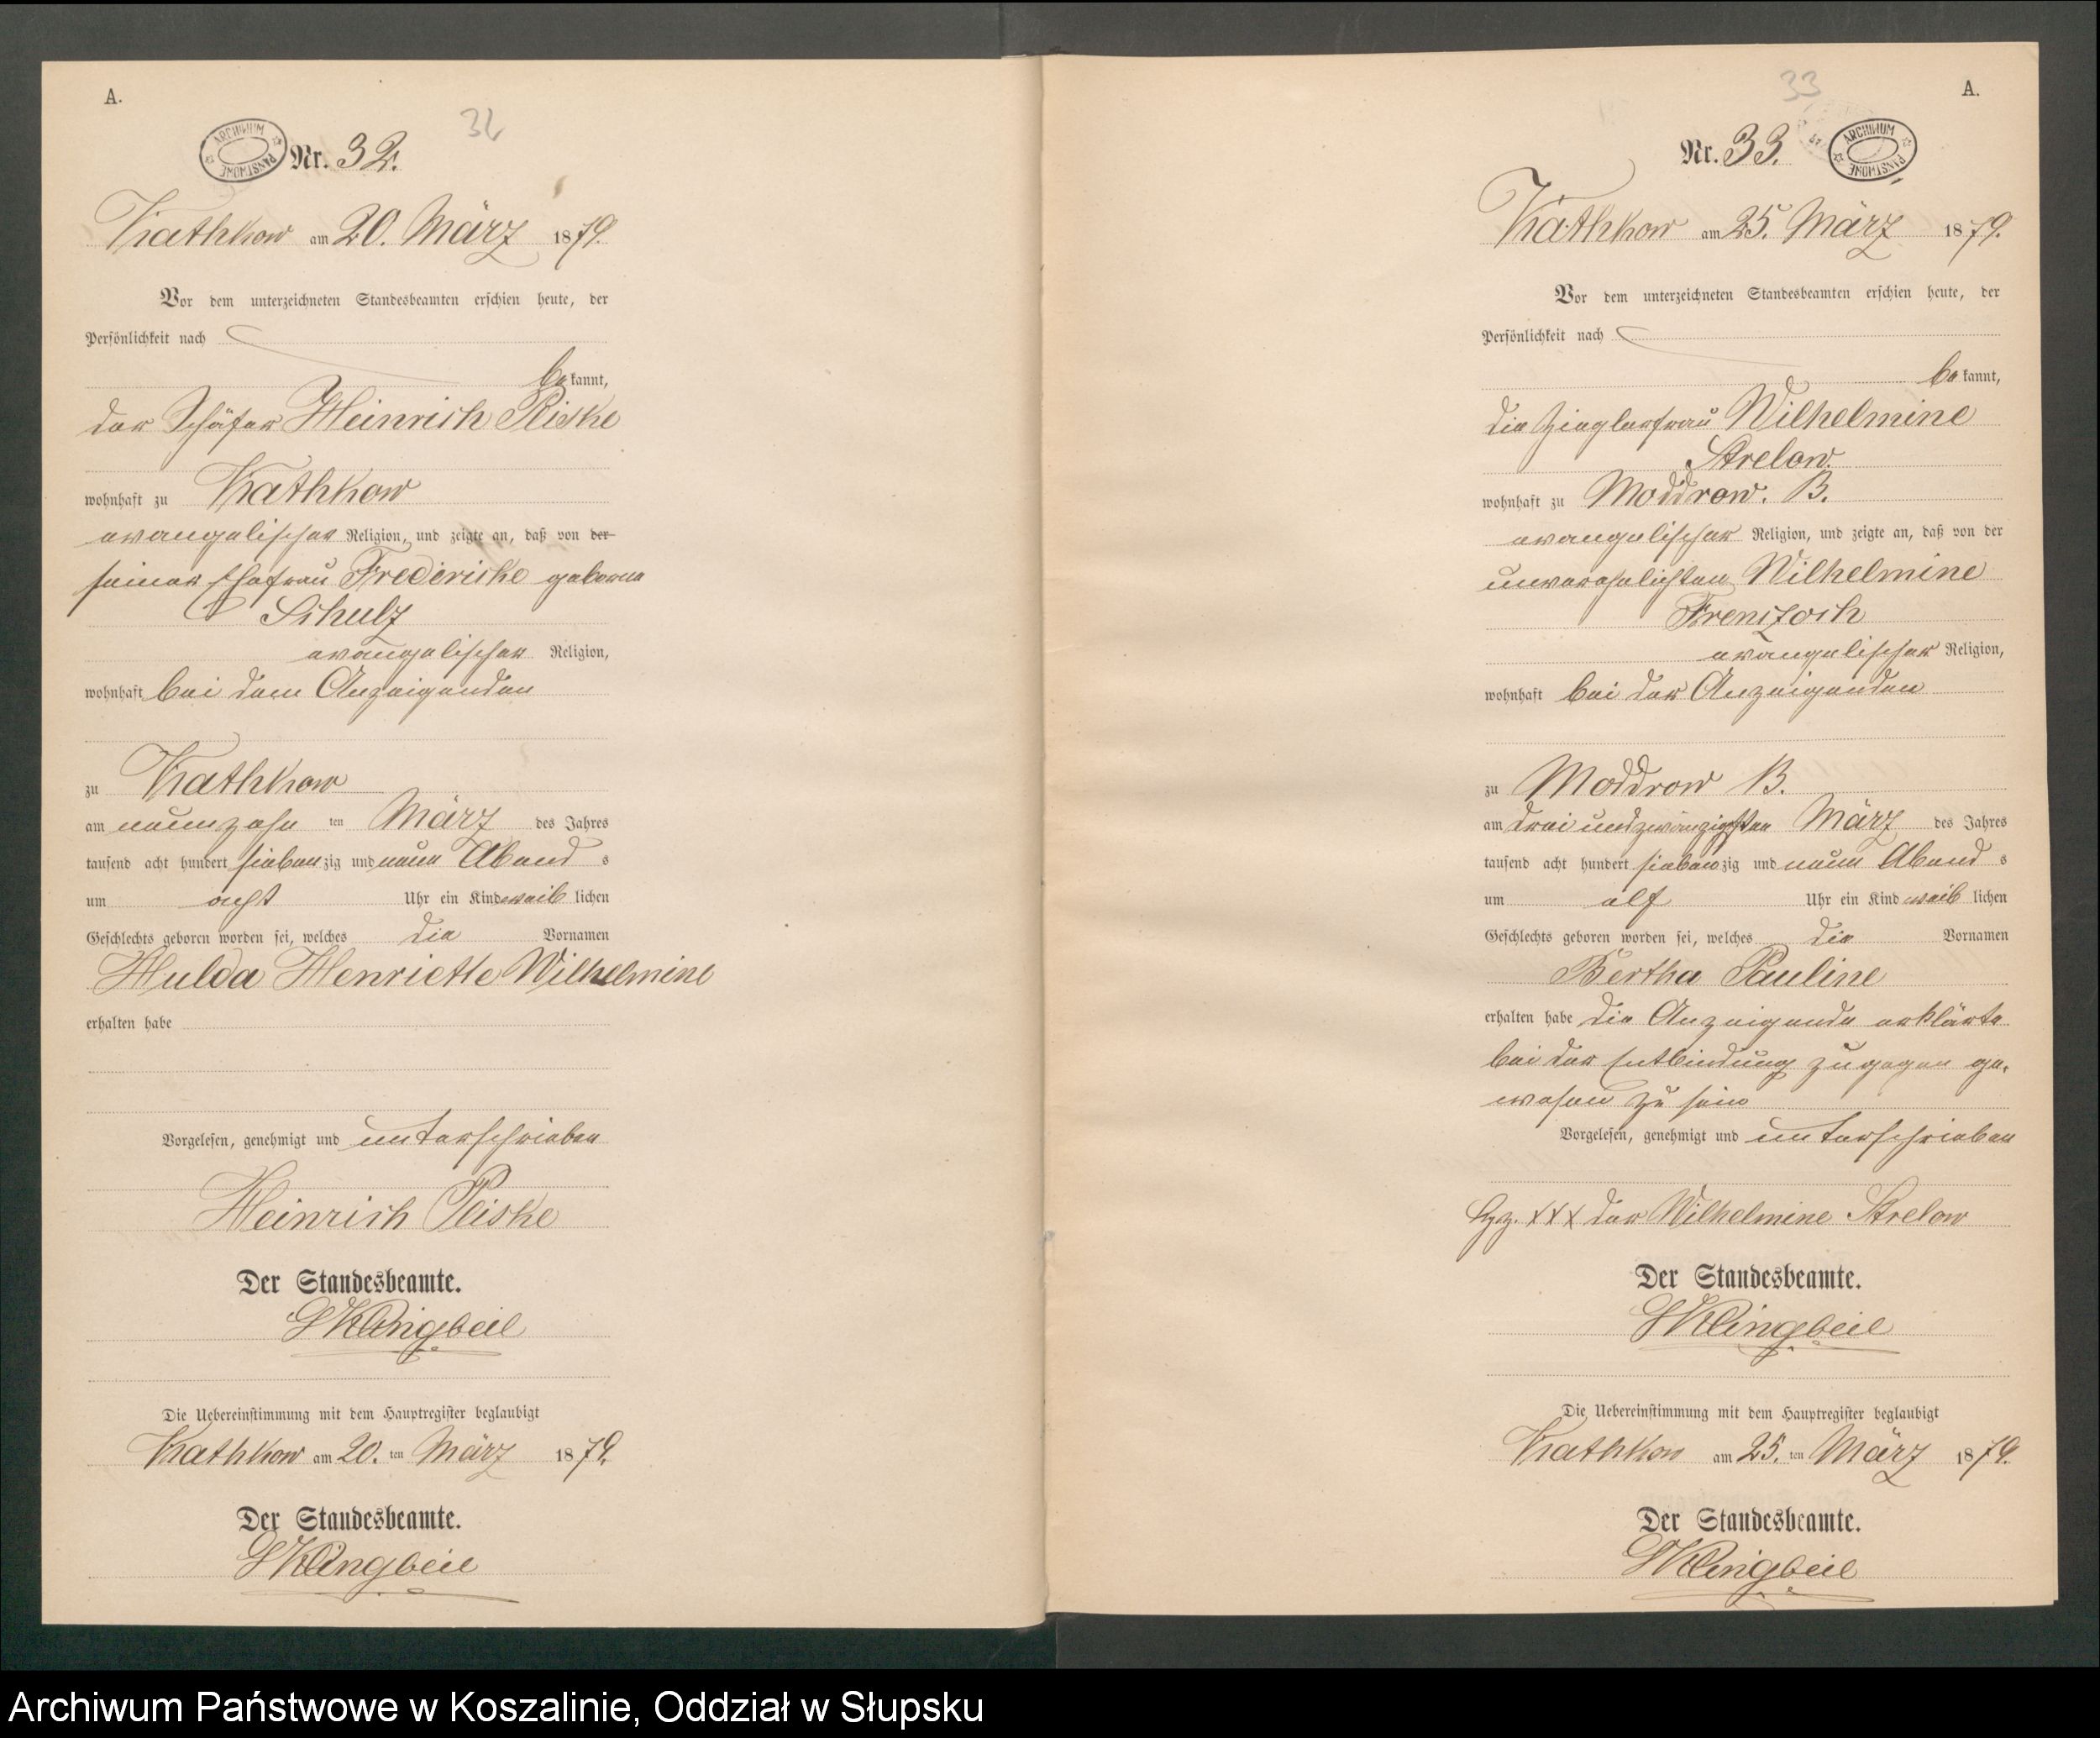 A.
ARCHIWUM PAŃSTWOWE
Nr. 32.
32
Kathkow am 20. März 1879.
Vor dem unterzeichneten Standesbeamten erschien heute, der
Persönlichkeit nach
bekannt,
der Schäfer Heinrich Piske
wohnhaft zu Kathkow
evangelischer Religion, und zeigte an, daß von der
seiner Ehefrau Friedericke geborne
Schulz
evangelischer Religion,
wohnhaft bei dem Anzeigenden
zu Kathkow
am neunzehnten März des Jahres
tausend acht hundert siebenzig und neun Abends
um acht Uhr ein Kind weiblichen
Geschlechts geboren worden sei, welches die Vornamen
Hulda Henriette Wilhelmine
erhalten habe
Vorgelesen, genehmigt und unterschrieben
Heinrich Piske
Der Standesbeamte.
Klingbeil
Die Uebereinstimmung mit dem Hauptregister beglaubigt
Kathkow am 20. ten März 1879.
Der Standesbeamte.
Klingbeil
33
A.
Nr. 33.
ARCHIWUM PAŃSTWOWE
Kathkow am 25. März 1879.
Vor dem unterzeichneten Standesbeamten erschien heute, der
Persönlichkeit nach
bekannt,
die Zieglerfrau Wilhelmine
Strelow
wohnhaft zu Moddrow. B.
evangelischer Religion, und zeigte an, daß von der
unverehelichten Wilhelmine
evangelischer Religion,
wohnhaft bei der Anzeigenden
zu Moddrow B.
am drei und zwanzigsten März des Jahres
tausend acht hundert siebenzig und neun Abends
um elf Uhr ein Kind weiblichen
Geschlechts geboren worden sei, welches die Vornamen
Bertha Pauline
erhalten habe die Anzeigende erklärte
bei der Entbindung zugegen ge-
wesen zu sein
Vorgelesen, genehmigt und unterschrieben
Hzz. XXX der Wilhelmine Strelow
Der Standesbeamte.
Klingbeil
Die Uebereinstimmung mit dem Hauptregister beglaubigt
Kathkow am 25. ten März 1879.
Der Standesbeamte.
Klingbeil
Archiwum Państwowe w Koszalinie, Oddział w Słupsku